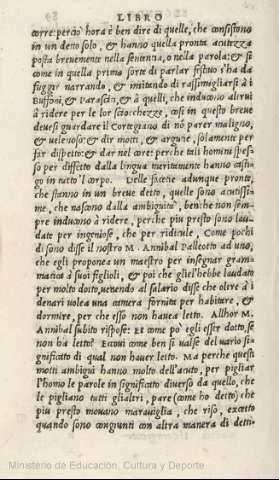 LIBRO
corre: perciò hora è ben dire di quelle, che consistono
in un detto solo, & hanno quella pronta acutezza
posta brevemente nella sentenza, o nella parola: & si
come in quella prima sorte di parlar festivo s'ha da
fuggir narrando, & imitando di rassimigliarsi à i
Buffoni, & Parasiti, & à quelli, che inducono altrui
à ridere per le lor sciocchezze, così in questo breve
devesi guardare il Cortegiano di nò parer maligno,
& velenoso & dir motti, & argutie, solamente per
far dispetto: & dar nel core: perche tali homini spes-
so per diffetto dalla lingua meritamente hanno casti-
go in tutto 'l corpo. Delle facetie adunque pronte,
che stanno in un breve detto, quelle sono acutissi-
me, che nascono dalla ambiguità, benche non sem-
pre inducono à ridere, perche piu presto sono lau-
date per ingeniose, che per ridicule. Come pochi
dì sono disse il nostro M. Annibal Palleotto ad uno,
che egli proponea un maestro per insegnar gram-
matica à suoi figlioli, & poi che gliel'hebbe laudato
per molto dotto, venendo al salario disse che oltre à i
denari volea una camera fornita per habitare, &
dormire, per che esso non havea letto. Allhor M.
Annibal subito rispose: Et come po' egli esser dotto, se
non ha letto? Eccovi come ben si valse del vario si-
gnificatto di qual non haver letto. Ma perche questi
motti ambigui hanno molto dell'acuto, per pigliar
l'homo le parole in significatto diverso da quello, che
le pigliano tutti gliàltri, pare (come ho detto) che
piu presto movano maraviglia, che riso, eccetto
quando sono congiunti con altra manera di detti.
Ministerio de Educación, Cultura y Deporte